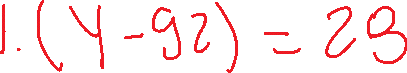 1. (y-92) = 28